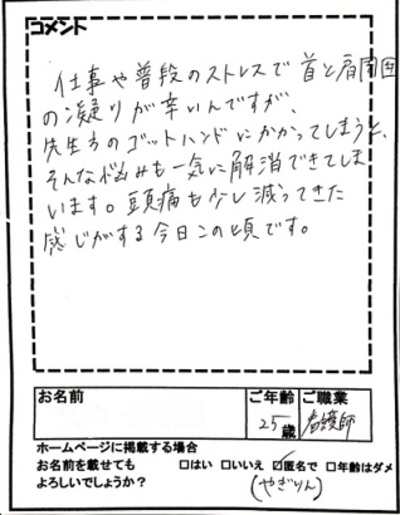 コメント
仕事や普段のストレスで首と肩周囲
の凝りが辛いんですが、
先生方のゴットハンドにかかってしまうと、
そんな悩みも一気に解消できてしま
います。頭痛も少し減ってきた
感じがする今日この頃です。
お名前 ご年齢 ご職業
25歳 看護師
ホームページに掲載する場合
お名前を載せても □はい □いいえ ☑匿名で □年齢はダメ
よろしいでしょうか? (やぎりん)